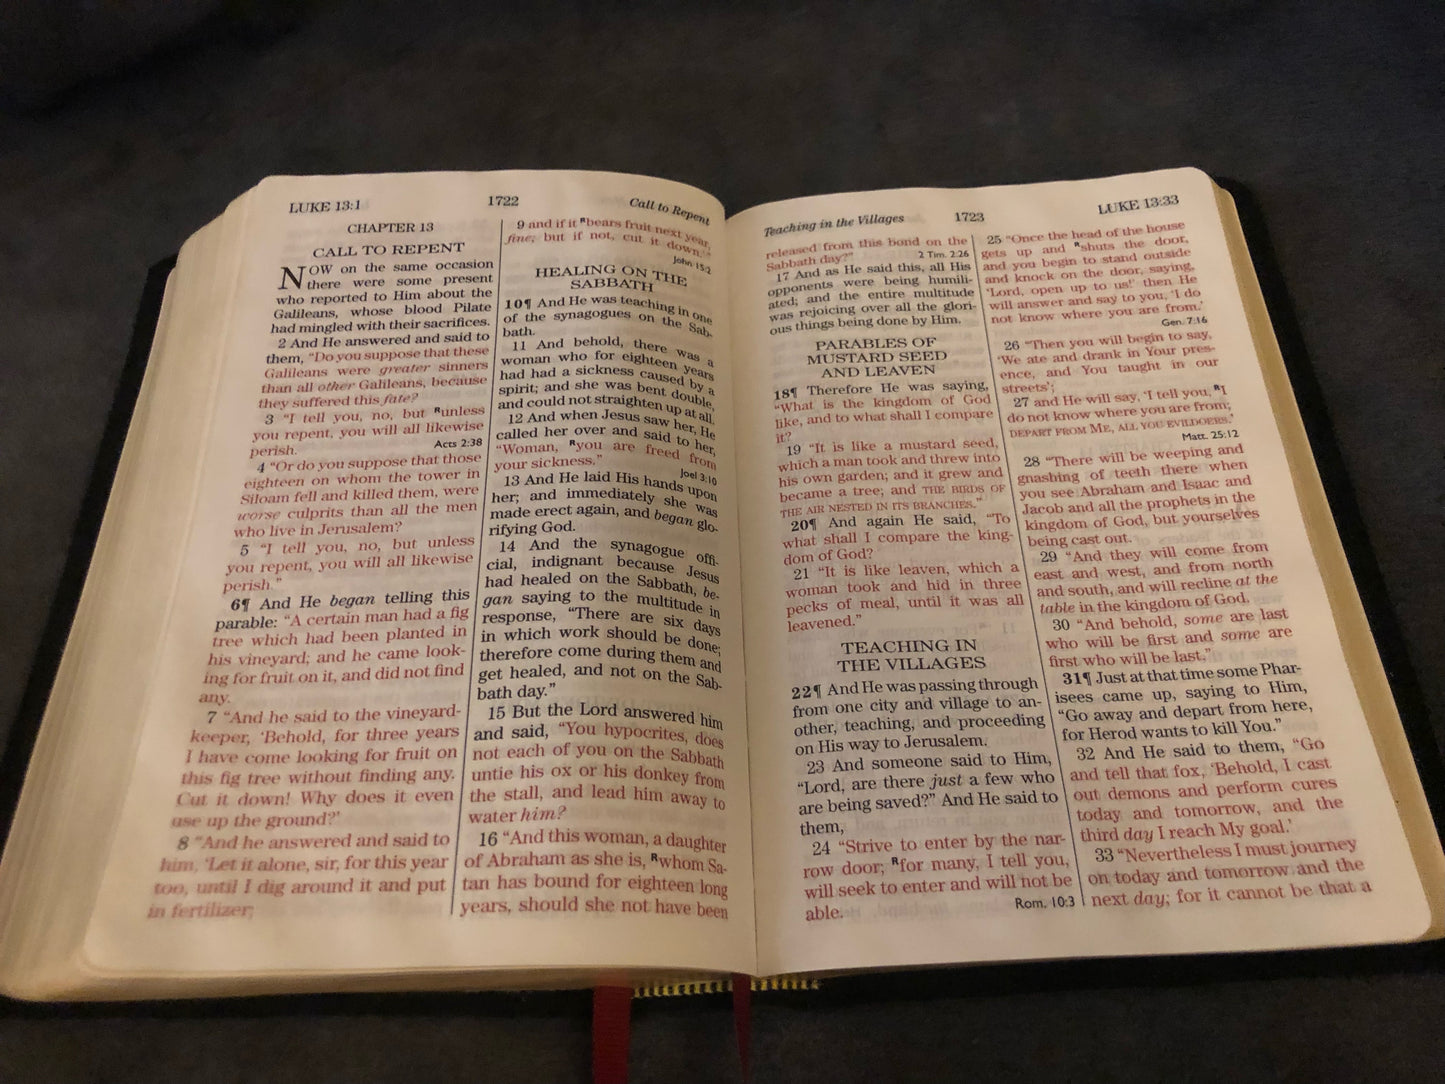 LUKE 13:1
1722
Call to Repent
CHAPTER 13
CALL TO REPENT
NOW on the same occasion
there were some present
who reported to Him about the
Galileans, whose blood Pilate
had mingled with their sacrifices.
2 And He answered and said to
them, “Do you suppose that these
Galileans were greater sinners
than all other Galileans, because
they suffered this fate?
3 “I tell you, no, but ᴿunless
you repent, you will all likewise
perish.
Acts 2:38
4 “Or do you suppose that those
eighteen on whom the tower in
Siloam fell and killed them, were
worse culprits than all the men
who live in Jerusalem?
5 “I tell you, no, but unless
you repent, you will all likewise
perish.”
6¶ And He began telling this
parable: “A certain man had a fig
tree which had been planted in
his vineyard; and he came look-
ing for fruit on it, and did not find
any.
7 “And he said to the vineyard-
keeper, ‘Behold, for three years
I have come looking for fruit on
this fig tree without finding any.
Cut it down! Why does it even
use up the ground?’
8 “And he answered and said to
him, ‘Let it alone, sir, for this year
too, until I dig around it and put
in fertilizer;
9 and if it ᴿbears fruit next year,
fine; but if not, cut it down.’”
John 15:2
HEALING ON THE
SABBATH
10¶ And He was teaching in one
of the synagogues on the Sab-
bath.
11 And behold, there was a
woman who for eighteen years
had had a sickness caused by a
spirit; and she was bent double,
and could not straighten up at all.
12 And when Jesus saw her, He
called her over and said to her,
“Woman, ᴿyou are freed from
your sickness.”
Joel 3:10
13 And He laid His hands upon
her; and immediately she was
made erect again, and began glo-
rifying God.
14 And the synagogue offi-
cial, indignant because Jesus
had healed on the Sabbath, be-
gan saying to the multitude in
response, “There are six days
in which work should be done;
therefore come during them and
get healed, and not on the Sab-
bath day.”
15 But the Lord answered him
and said, “You hypocrites, does
not each of you on the Sabbath
untie his ox or his donkey from
the stall, and lead him away to
water him?
16 “And this woman, a daughter
of Abraham as she is, ᴿwhom Sa-
tan has bound for eighteen long
years, should she not have been
Teaching in the Villages
1723
LUKE 13:33
released from this bond on the
Sabbath day?”
2 Tim. 2:26
17 And as He said this, all His
opponents were being humili-
ated; and the entire multitude
was rejoicing over all the glori-
ous things being done by Him.
PARABLES OF
MUSTARD SEED
AND LEAVEN
18¶ Therefore He was saying,
“What is the kingdom of God
like, and to what shall I compare
it?
19 “It is like a mustard seed,
which a man took and threw into
his own garden; and it grew and
became a tree; and THE BIRDS OF
THE AIR NESTED IN ITS BRANCHES.”
20¶ And again He said, “To
what shall I compare the king-
dom of God?
21 “It is like leaven, which a
woman took and hid in three
pecks of meal, until it was all
leavened.”
TEACHING IN
THE VILLAGES
22¶ And He was passing through
from one city and village to an-
other, teaching, and proceeding
on His way to Jerusalem.
23 And someone said to Him,
“Lord, are there just a few who
are being saved?” And He said to
them,
24 “Strive to enter by the nar-
row door; ᴿfor many, I tell you,
will seek to enter and will not be
able.
Rom. 10:3
25 “Once the head of the house
gets up and ᴿshuts the door,
and you begin to stand outside
and knock on the door, saying,
‘Lord, open up to us!’ then He
will answer and say to you, ‘I do
not know where you are from.’
Gen. 7:16
26 “Then you will begin to say,
‘We ate and drank in Your pres-
ence, and You taught in our
streets’;
27 and He will say, ‘I tell you, ᴿI
do not know where you are from;
DEPART FROM ME, ALL YOU EVILDOERS.’
Matt. 25:12
28 “There will be weeping and
gnashing of teeth there when
you see Abraham and Isaac and
Jacob and all the prophets in the
kingdom of God, but yourselves
being cast out.
29 “And they will come from
east and west, and from north
and south, and will recline at the
table in the kingdom of God.
30 “And behold, some are last
who will be first and some are
first who will be last.”
31¶ Just at that time some Phar-
isees came up, saying to Him,
“Go away and depart from here,
for Herod wants to kill You.”
32 And He said to them, “Go
and tell that fox, ‘Behold, I cast
out demons and perform cures
today and tomorrow, and the
third day I reach My goal.’
33 “Nevertheless I must journey
on today and tomorrow and the
next day; for it cannot be that a